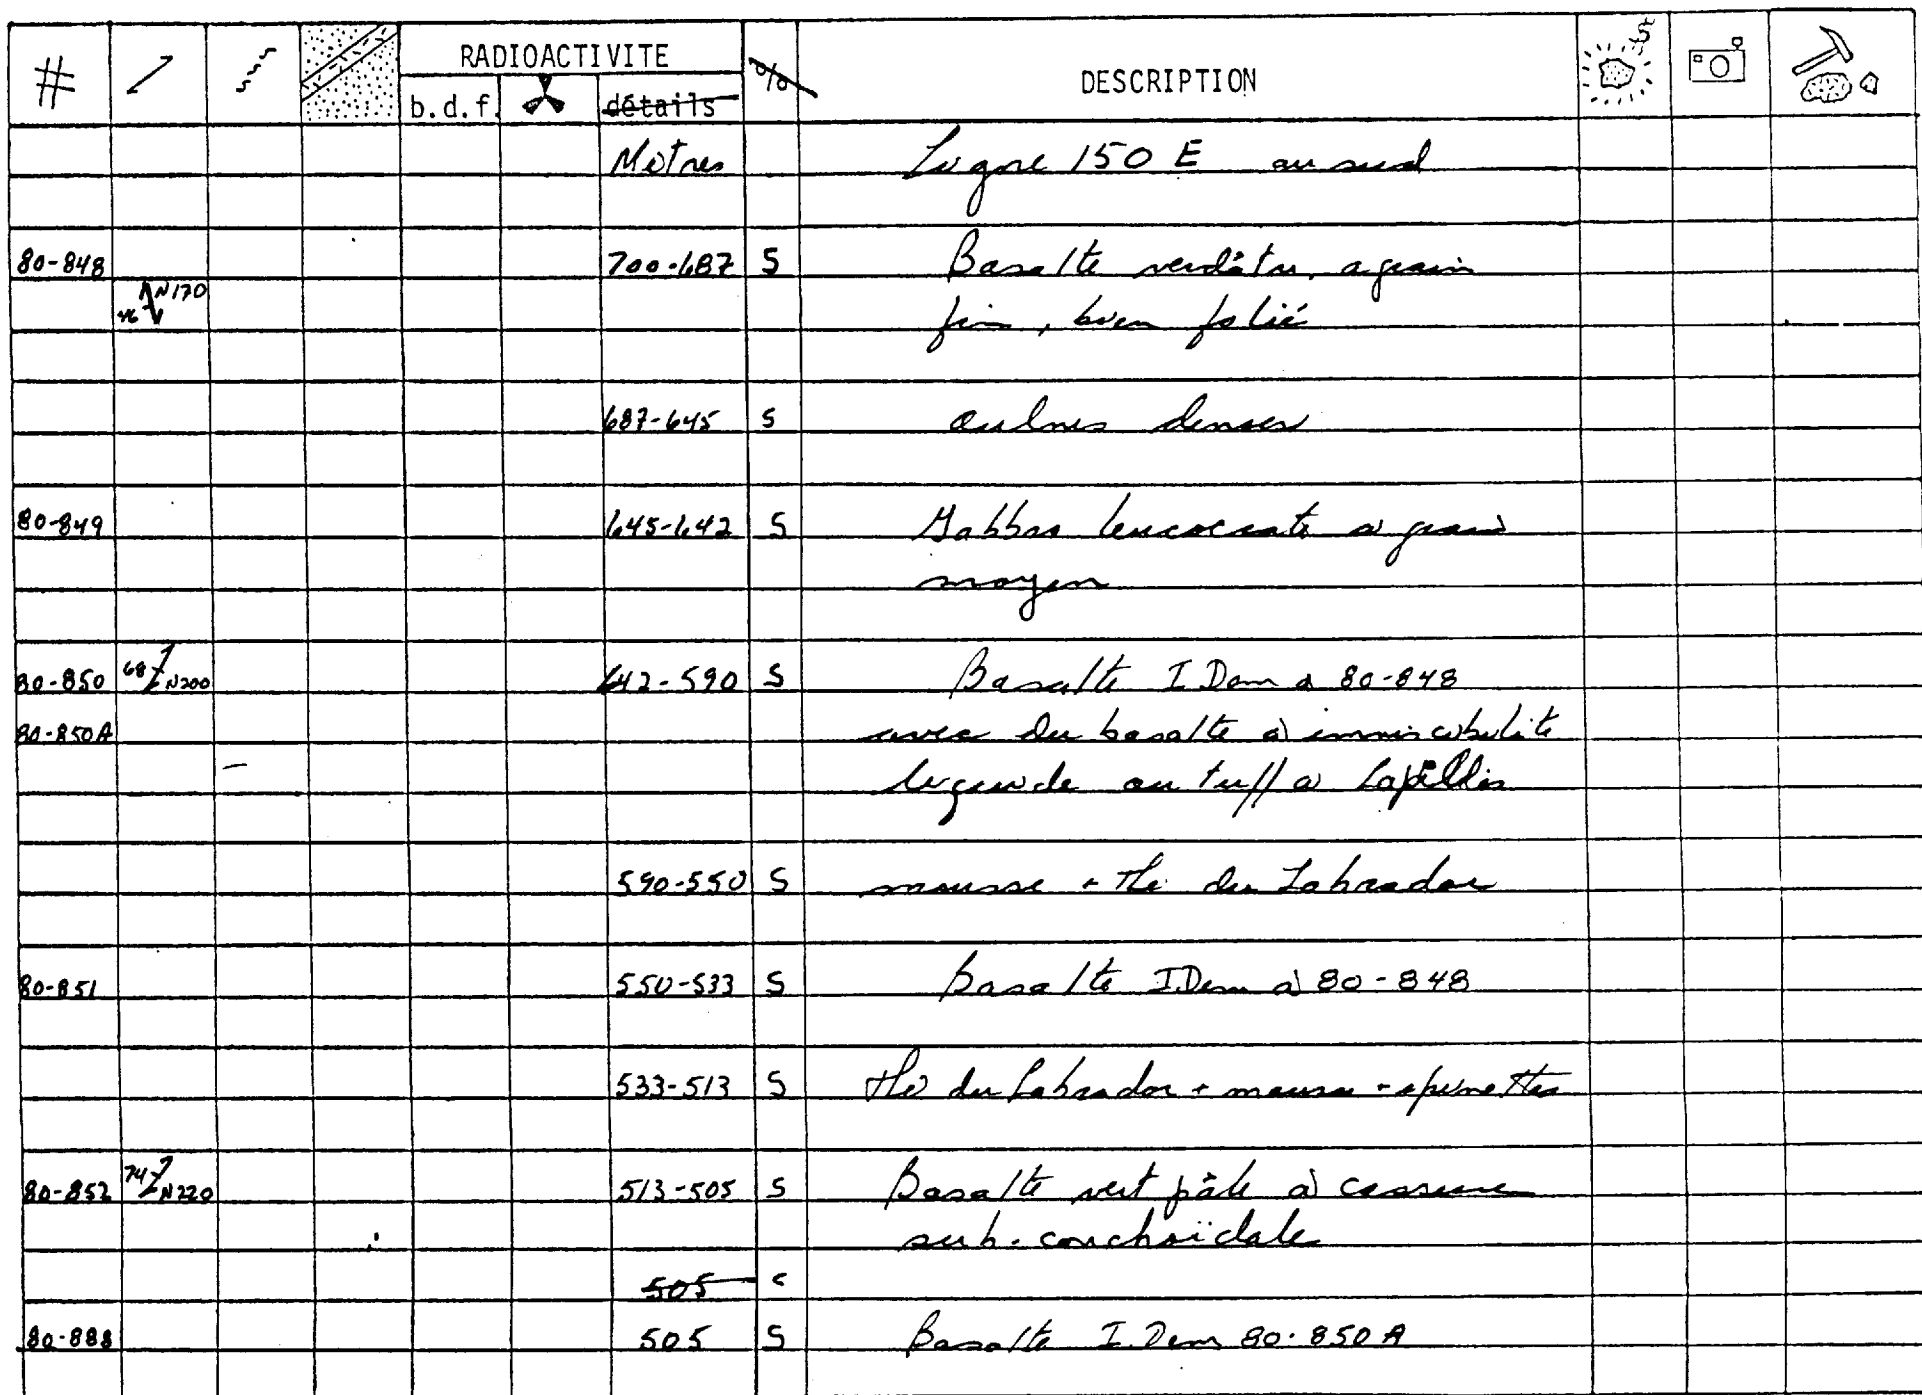 # RADIOACTIVITE % DESCRIPTION
b.d.f. détails
Mètres Ligne 150 E au sud
80-848 700-687 S Basalte verdâtre, a grain
46 N170 fin, bien folié
687-645 S aulnes denses
80-849 645-642 S Gabbro leucocrate a grain
moyen
80-850 68 N200 642-590 S Basalte IDem à 80-848
80-850A avec du basalte à immiscibilité
liquide ou tuff a Lapillis
590-550 S mousse + thé du Labrador
80-851 550-533 S Basalte IDem à 80-848
533-513 S thé du Labrador + mousse + épinettes
80-852 74 N220 513-505 S Basalte vert pâle à cassure
sub-conchoïdale
505 S
80-888 505 S Basalte I Dem 80-850A